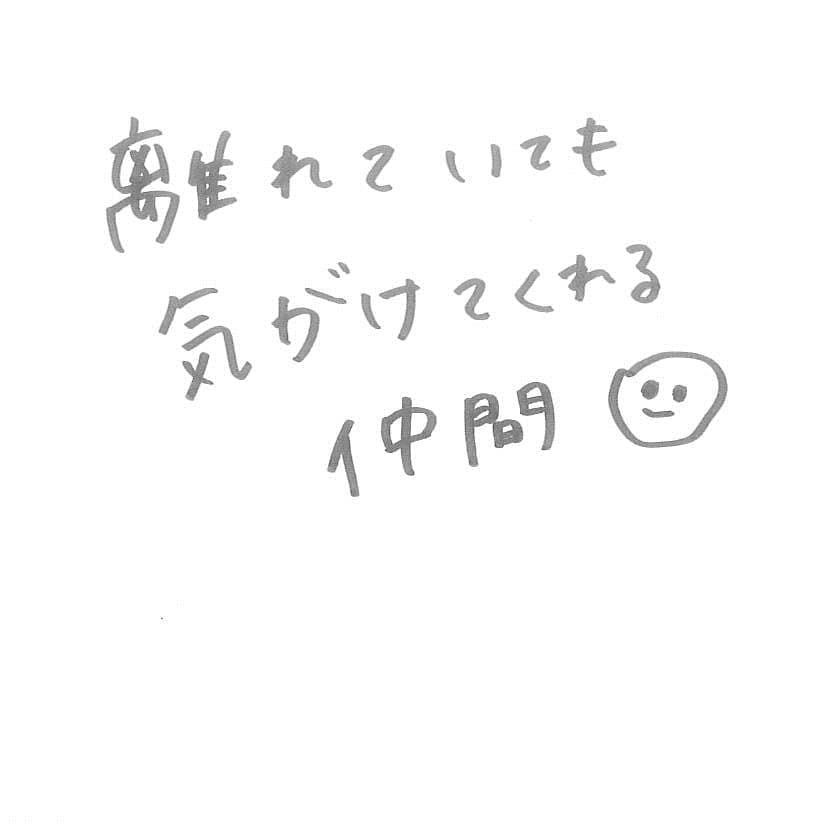 離れていても
気がけてくれる
仲間